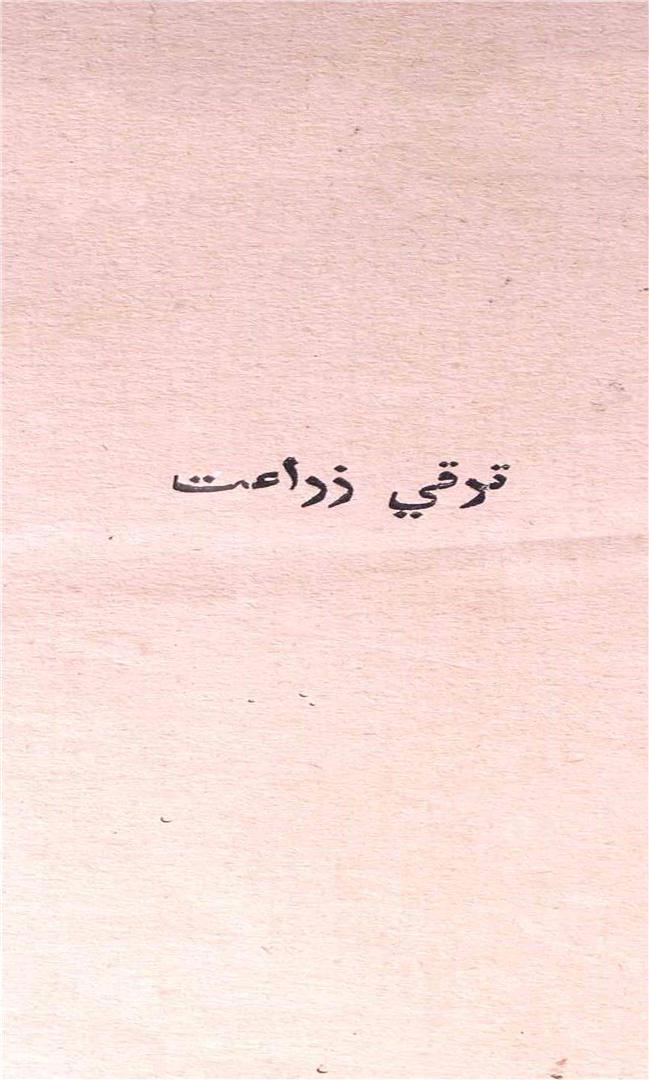 ترقي زراعت